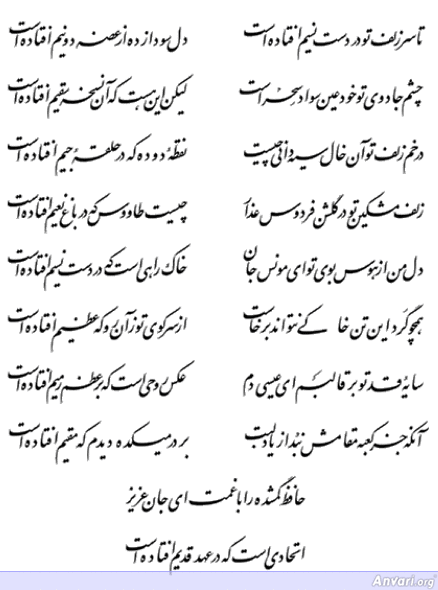 تا سر زلف تو در دست نسیم افتاده است دل سودازده از غصه دو نیم افتاده است
چشم جادوی تو خود عین سواد سحر است لیکن این هست که آن نسخه سقیم افتاده است
در خم زلف تو آن خال سیه دانی چیست نقطهٔ دوده که در حلقهٔ جیم افتاده است
زلف مشکین تو در گلشن فردوس عذار چیست طاووس که در باغ نعیم افتاده است
دل من از هوس بوی تو ای مونس جان خاک راهی است که در دست نسیم افتاده است
همچو گرد این تن خاکی نتواند برخاست از سر کوی تو زان رو که عظیم افتاده است
سایهٔ قد تو بر قالبم ای عیسی دم عکس روحی است که بر عظم رمیم افتاده است
آنکه جز کعبه مقامش نبد از یاد لبت بر در میکده دیدم که مقیم افتاده است
حافظ گمشده را با غمت ای جان عزیز
اتحادی است که در عهد قدیم افتاده است
Anvari.org